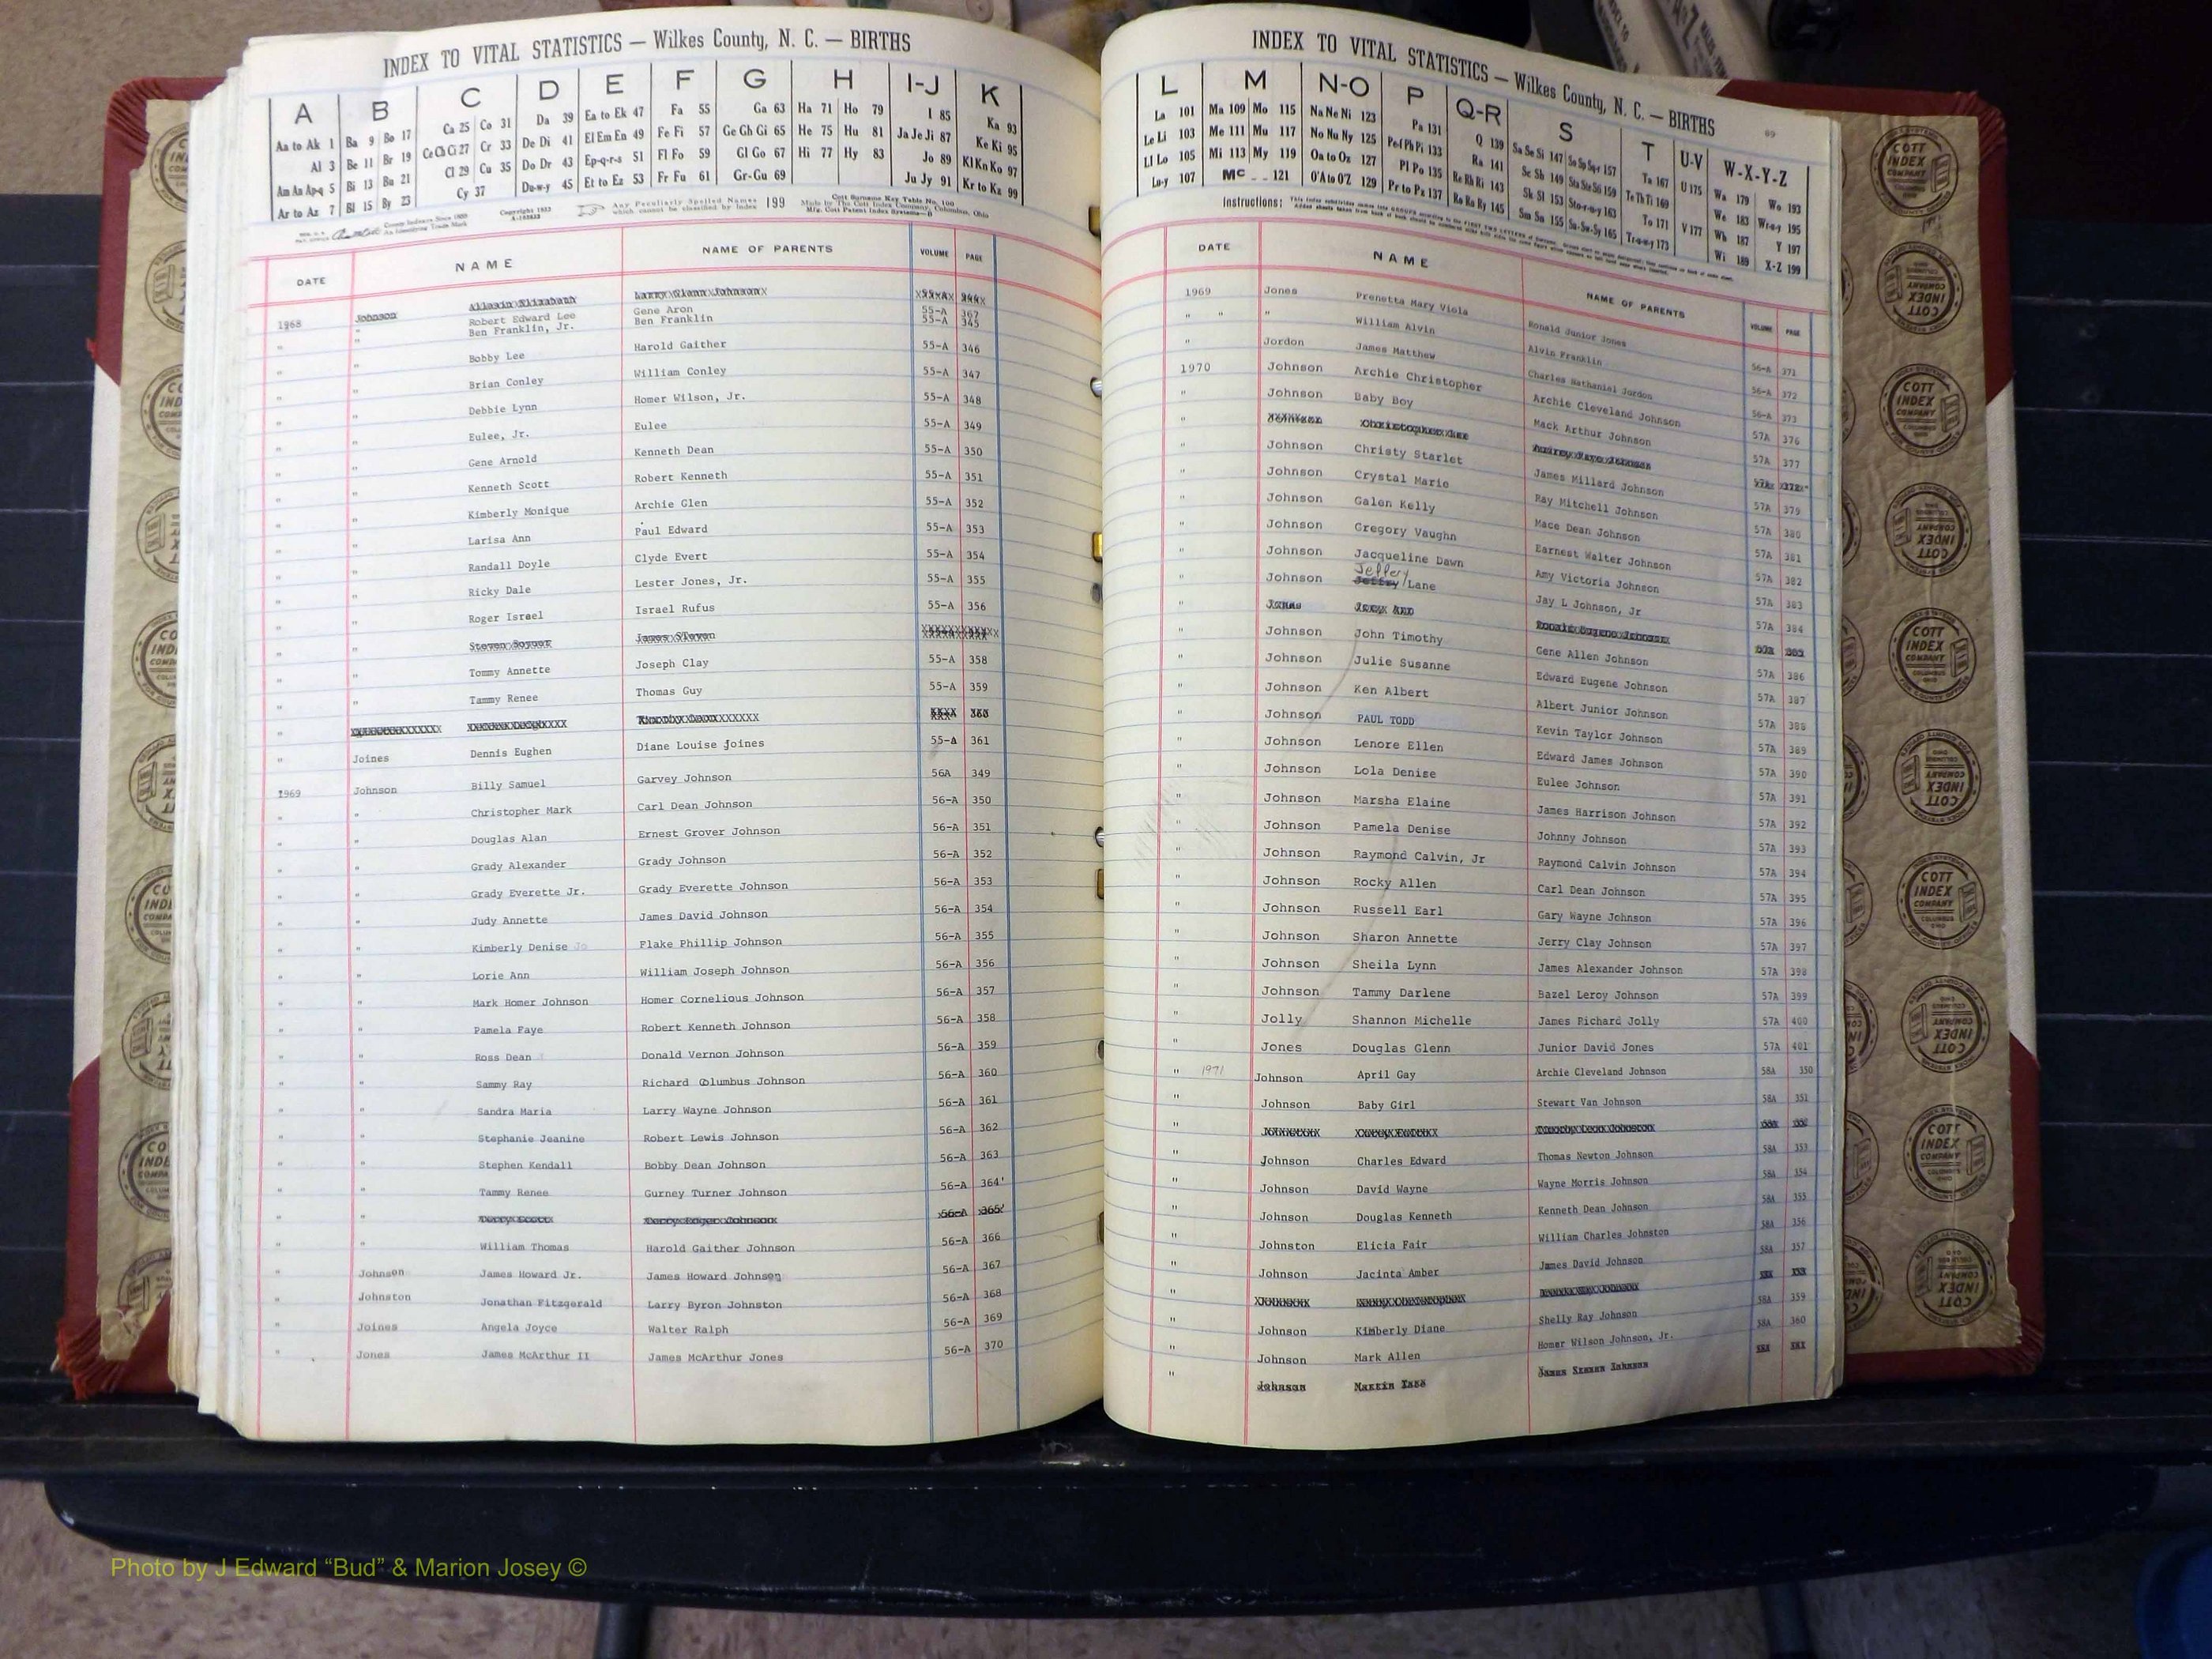 INDEX TO VITAL STATISTICS — Wilkes County, N. C. — BIRTHS
A B C D E F G H I-J K
Aa to Ak 1 Ba 9 Bo 17 Ca 25 Co 31 Da 39 Ea to Ek 47 Fa 55 Ga 63 Ha 71 Ho 79 I 85 Ka 93
Al 3 Be 11 Br 19 Ce Ch Ci 27 Cr 33 De Di 41 El Em En 49 Fe Fi 57 Ge Gh Gi 65 He 75 Hu 81 Ja Je Ji 87 Ke Ki 95
Am An Ap-q 5 Bi 13 Bu 21 Cl 29 Cu 35 Do Dr 43 Ep-q-r-s 51 Fl Fo 59 Gl Go 67 Hi 77 Hy 83 Jo 89 Kl Kn Ko 97
Ar to Az 7 Bl 15 By 23 Cy 37 Du-w-y 45 Et to Ez 53 Fr Fu 61 Gr-Gu 69 Ju Jy 91 Kr to Kz 99
Any Peculiarly Spelled Names which cannot be classified by index 199
Cott Surname Key Table No. 100
Made by The Cott Index Company, Columbus, Ohio
DATE NAME NAME OF PARENTS VOLUME PAGE
1968 Johnson Robert Edward Lee Gene Aron 55-A 367
" " Ben Franklin, Jr. Ben Franklin 55-A 345
" " Bobby Lee Harold Gaither 55-A 346
" " Brian Conley William Conley 55-A 347
" " Debbie Lynn Homer Wilson, Jr. 55-A 348
" " Eulee, Jr. Eulee 55-A 349
" " Gene Arnold Kenneth Dean 55-A 350
" " Kenneth Scott Robert Kenneth 55-A 351
" " Kimberly Monique Archie Glen 55-A 352
" " Larisa Ann Paul Edward 55-A 353
" " Randall Doyle Clyde Evert 55-A 354
" " Ricky Dale Lester Jones, Jr. 55-A 355
" " Roger Israel Israel Rufus 55-A 356
" " Tommy Annette Joseph Clay 55-A 358
" " Tammy Renee Thomas Guy 55-A 359
" Joines Dennis Eughen Diane Louise Joines 55-A 361
1969 Johnson Billy Samuel Garvey Johnson 56A 349
" " Christopher Mark Carl Dean Johnson 56-A 350
" " Douglas Alan Ernest Grover Johnson 56-A 351
" " Grady Alexander Grady Johnson 56-A 352
" " Grady Everette Jr. Grady Everette Johnson 56-A 353
" " Judy Annette James David Johnson 56-A 354
" " Kimberly Denise Jo Flake Phillip Johnson 56-A 355
" " Lorie Ann William Joseph Johnson 56-A 356
" " Mark Homer Johnson Homer Cornelious Johnson 56-A 357
" " Pamela Faye Robert Kenneth Johnson 56-A 358
" " Ross Dean Donald Vernon Johnson 56-A 359
" " Sammy Ray Richard Columbus Johnson 56-A 360
" " Sandra Maria Larry Wayne Johnson 56-A 361
" " Stephanie Jeanine Robert Lewis Johnson 56-A 362
" " Stephen Kendall Bobby Dean Johnson 56-A 363
" " Tammy Renee Gurney Turner Johnson 56-A 364
" " William Thomas Harold Gaither Johnson 56-A 366
" Johnson James Howard Jr. James Howard Johnson 56-A 367
" Johnston Jonathan Fitzgerald Larry Byron Johnston 56-A 368
" Joines Angela Joyce Walter Ralph 56-A 369
" Jones James McArthur II James McArthur Jones 56-A 370
INDEX TO VITAL STATISTICS — Wilkes County, N. C. — BIRTHS
89
L M N-O P Q-R S T U-V W-X-Y-Z
La 101 Ma 109 Mo 115 Na Ne Ni 123 Pa 131 Q 139 Sa Se Si 147 So Sp Sq-r 157 Ta 167 U 175 Wa 179 Wo 193
Le Li 103 Me 111 Mu 117 No Nu Ny 125 Pe-f Ph Pi 133 Ra 141 Sc Sh 149 Sta Ste Sti 159 Te Th Ti 169 We 183 Wr-u-y 195
Ll Lo 105 Mi 113 My 119 Oa to Oz 127 Pl Po 135 Re Rh Ri 143 Sk Sl 153 Sto-r-u-y 163 To 171 V 177 Wh 187 Y 197
Lu-y 107 Mc 121 O'A to O'Z 129 Pr to Px 137 Ro Ru Ry 145 Sm Sn 155 Su-Sw-Sy 165 Tr-u-w-y 173 Wi 189 X-Z 199
Instructions:
DATE NAME NAME OF PARENTS VOLUME PAGE
1969 Jones Prenetta Mary Viola Ronald Junior Jones 56-A 371
" " " William Alvin Alvin Franklin 56-A 372
" Jordon James Matthew Charles Nathaniel Jordon 56-A 373
1970 Johnson Archie Christopher Archie Cleveland Johnson 57A 376
" Johnson Baby Boy Mack Arthur Johnson 57A 377
" Johnson Christy Starlet James Millard Johnson 57A 379
" Johnson Crystal Marie Ray Mitchell Johnson 57A 380
" Johnson Galen Kelly Mace Dean Johnson 57A 381
" Johnson Gregory Vaughn Earnest Walter Johnson 57A 382
" Johnson Jacqueline Dawn Amy Victoria Johnson 57A 383
" Johnson Jeffery Lane Jay L Johnson, Jr 57A 384
" Johnson John Timothy Gene Allen Johnson 57A 386
" Johnson Julie Susanne Edward Eugene Johnson 57A 387
" Johnson Ken Albert Albert Junior Johnson 57A 388
" Johnson PAUL TODD Kevin Taylor Johnson 57A 389
" Johnson Lenore Ellen Edward James Johnson 57A 390
" Johnson Lola Denise Eulee Johnson 57A 391
" Johnson Marsha Elaine James Harrison Johnson 57A 392
" Johnson Pamela Denise Johnny Johnson 57A 393
" Johnson Raymond Calvin, Jr Raymond Calvin Johnson 57A 394
" Johnson Rocky Allen Carl Dean Johnson 57A 395
" Johnson Russell Earl Gary Wayne Johnson 57A 396
" Johnson Sharon Annette Jerry Clay Johnson 57A 397
" Johnson Sheila Lynn James Alexander Johnson 57A 398
" Johnson Tammy Darlene Bazel Leroy Johnson 57A 399
" Jolly Shannon Michelle James Richard Jolly 57A 400
" Jones Douglas Glenn Junior David Jones 57A 401
" 1971 Johnson April Gay Archie Cleveland Johnson 58A 350
" Johnson Baby Girl Stewart Van Johnson 58A 351
" Johnson Charles Edward Thomas Newton Johnson 58A 353
" Johnson David Wayne Wayne Morris Johnson 58A 354
" Johnson Douglas Kenneth Kenneth Dean Johnson 58A 355
" Johnston Elicia Fair William Charles Johnston 58A 356
" Johnson Jacinta Amber James David Johnson 58A 357
" Johnson Kimberly Diane Shelly Ray Johnson 58A 359
" Johnson Mark Allen Homer Wilson Johnson, Jr. 58A 360
COTT INDEX COMPANY COLUMBUS OHIO
Photo by J Edward “Bud” & Marion Josey ©